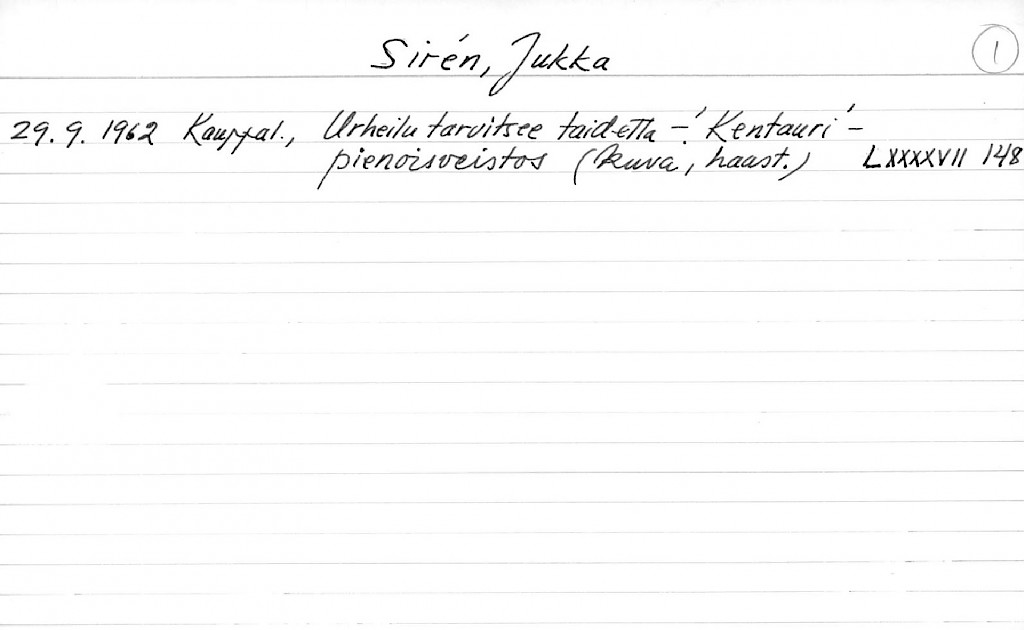 Sirén, Jukka 1
29.9.1962 Kauppal., Urheilu tarvitsee taidetta – 'Kentauri' –
pienoisveistos (kuva, haast.) LXXXXVII 148